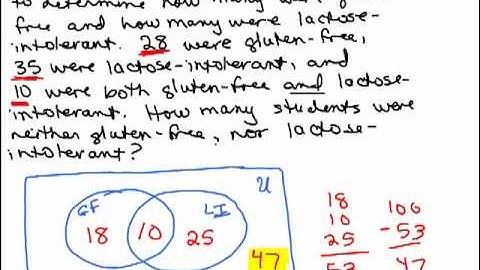 to determine how many were gluten-
free and how many were lactose-
intolerant. 28 were gluten-free,
35 were lactose-intolerant, and
10 were both gluten-free and lactose-
intolerant. How many students were
neither gluten-free, nor lactose-
intolerant?
U
GF
LI
18
10
25
47
18
10
25
53
100
-53
47